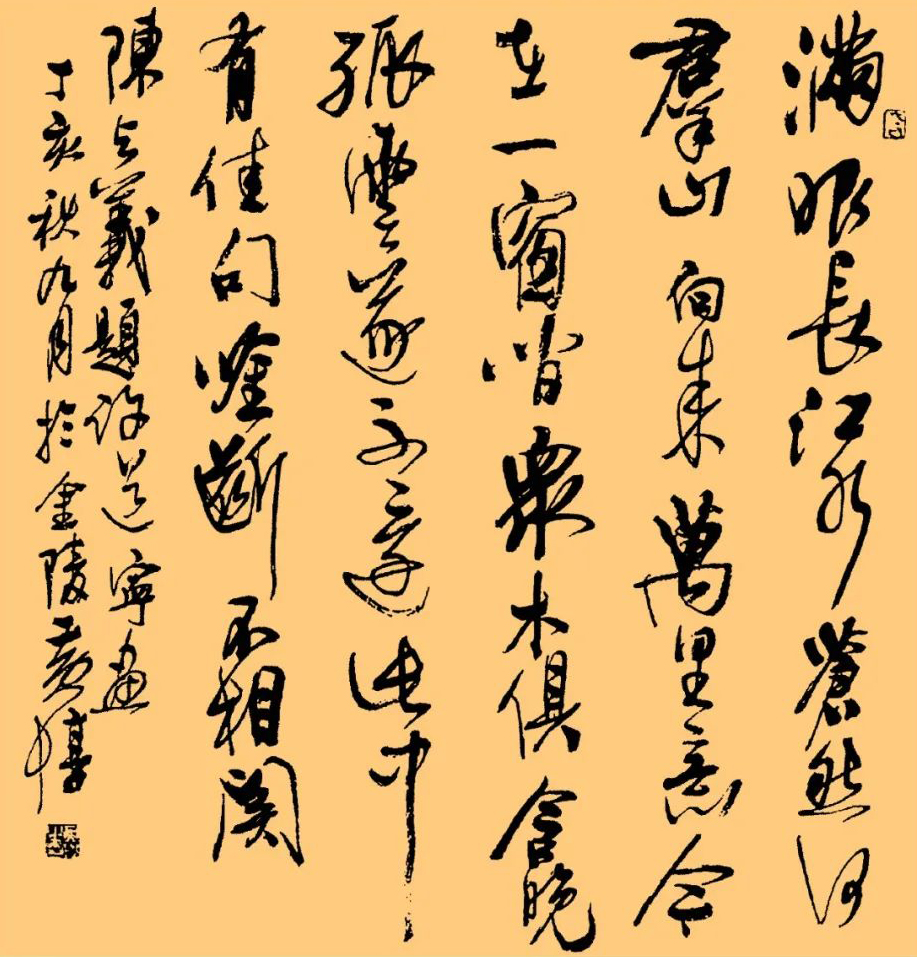 滿眼長江水蒼然何
羣山向来萬里意今
在一窗間眾木俱含晚
孤雲遂不還此中
有佳句唫斷不相関
陳与義題許道寧畫
丁亥秋九月於金陵黄惇